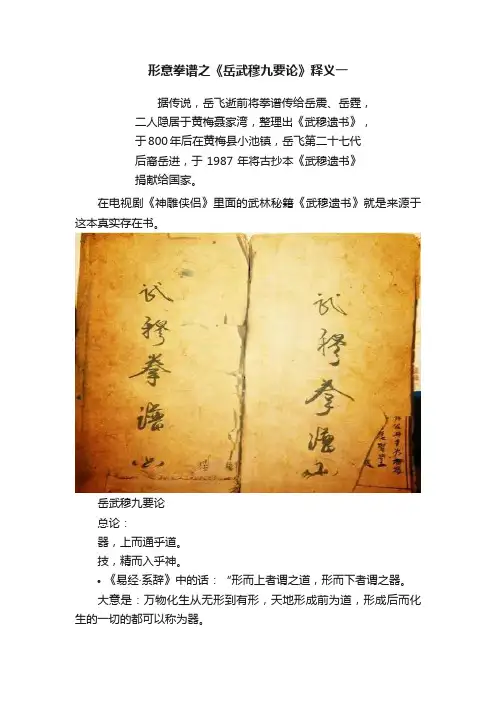 形意拳谱之《岳武穆九要论》释义一
据传说，岳飞逝前将拳谱传给岳震、岳霆，
二人隐居于黄梅聂家湾，整理出《武穆遗书》，
于800年后在黄梅县小池镇，岳飞第二十七代
后裔岳进，于1987年将古抄本《武穆遗书》
捐献给国家。
在电视剧《神雕侠侣》里面的武林秘籍《武穆遗书》就是来源于
这本真实存在书。
武穆拳谱
武穆拳谱
岳武穆九要论
总论：
器，上而通乎道。
技，精而入乎神。
•《易经·系辞》中的话："形而上者谓之道，形而下者谓之器。
大意是：万物化生从无形到有形，天地形成前为道，形成后而化
生的一切的都可以称为器。